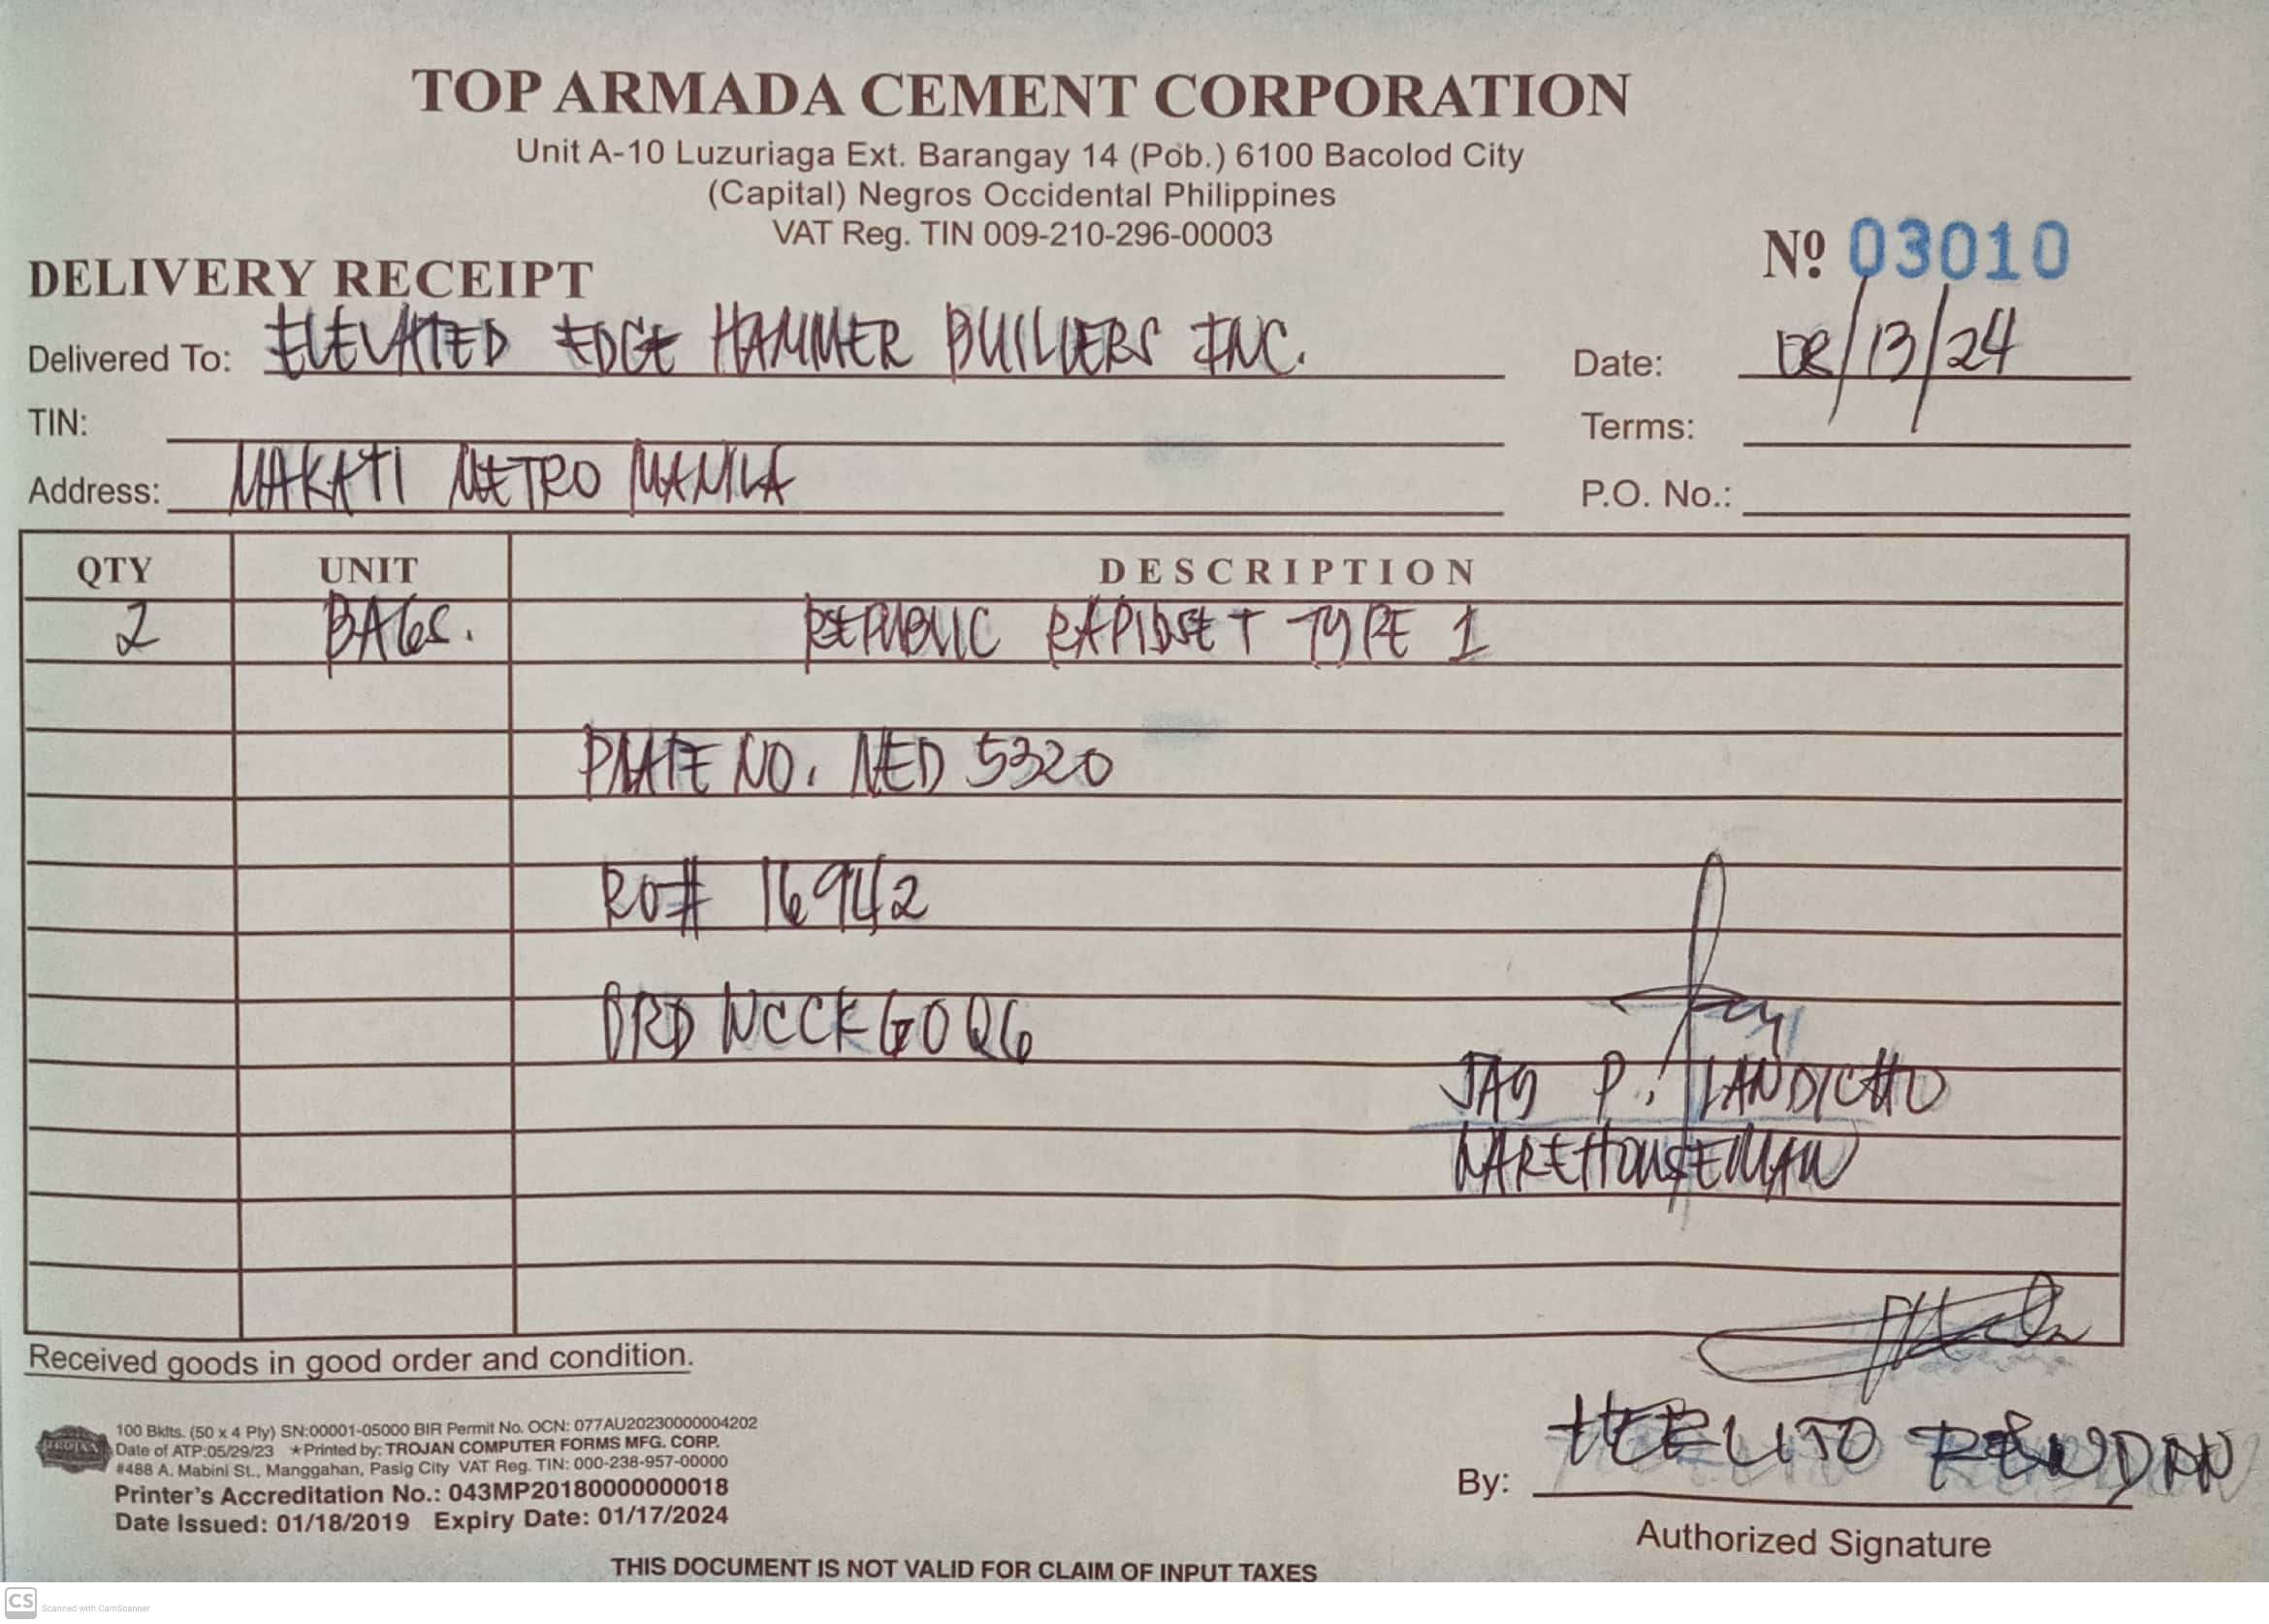 TOP ARMADA CEMENT CORPORATION
Unit A-10 Luzuriaga Ext. Barangay 14 (Pob.) 6100 Bacolod City
(Capital) Negros Occidental Philippines
VAT Reg. TIN 009-210-296-00003
Nº 03010
DELIVERY RECEIPT
Delivered To: ELEVATED EDGE HAMMER BUILDERS INC. Date: 08/13/24
TIN: Terms:
Address: MAKATI METRO MANILA P.O. No.:
QTY UNIT DESCRIPTION
2 BAGS. REPUBLIC RAPIDSET TYPE 1
PLATE NO. NED 5320
RO# 16942
DRD WCCK GOQ6
JAY P. LANDICHO
WAREHOUSEMAN
Received goods in good order and condition.
TROJAN
100 Bklts. (50 x 4 Ply) SN:00001-05000 BIR Permit No. OCN: 077AU20230000004202
Date of ATP:05/29/23 ★Printed by: TROJAN COMPUTER FORMS MFG. CORP.
#488 A. Mabini St., Manggahan, Pasig City VAT Reg. TIN: 000-238-957-00000
Printer's Accreditation No.: 043MP20180000000018
Date Issued: 01/18/2019 Expiry Date: 01/17/2024
By:
Authorized Signature
THIS DOCUMENT IS NOT VALID FOR CLAIM OF INPUT TAXES
CS Scanned with CamScanner